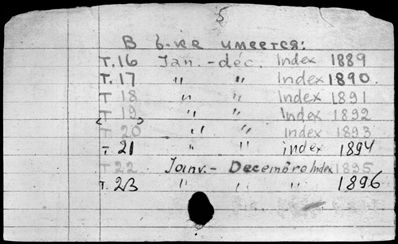 5
В б-ке имеется:
Т. 16 Jan. - déc. Index 1889
Т. 17 " " Index 1890.
Т 18 " " Index 1891
Т 19 " " Index 1892
Т 20 " " Index 1893
т. 21 " " index 1894
Т 22 Janv. - Decembre Index 1895
т. 23 " " " 1896